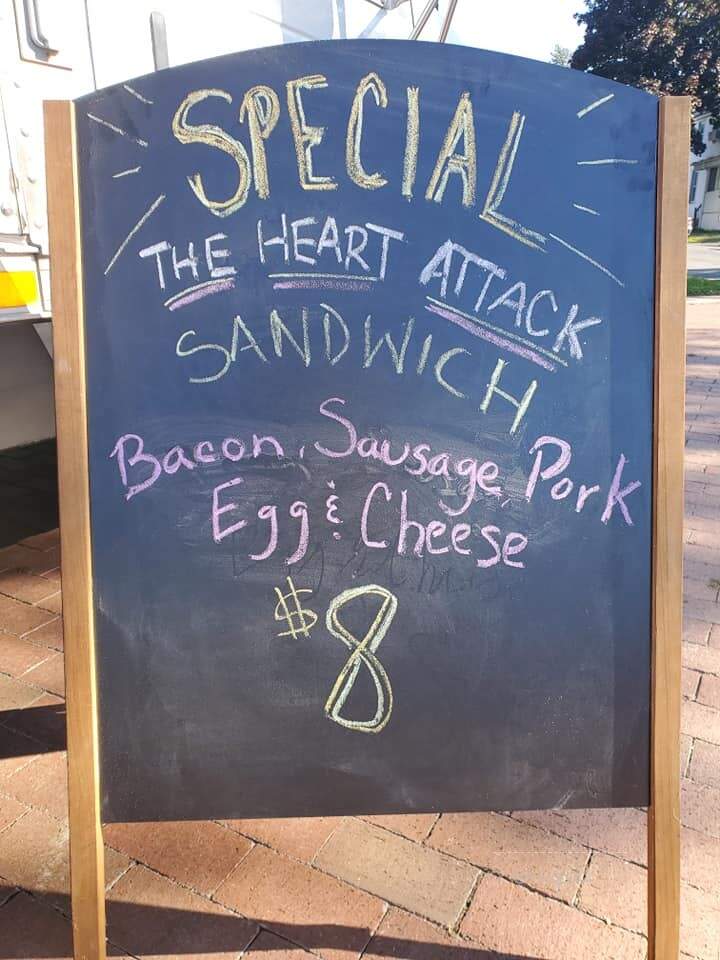 SPECIAL
THE HEART ATTACK
SANDWICH
Bacon, Sausage, Pork
Egg & Cheese
$8